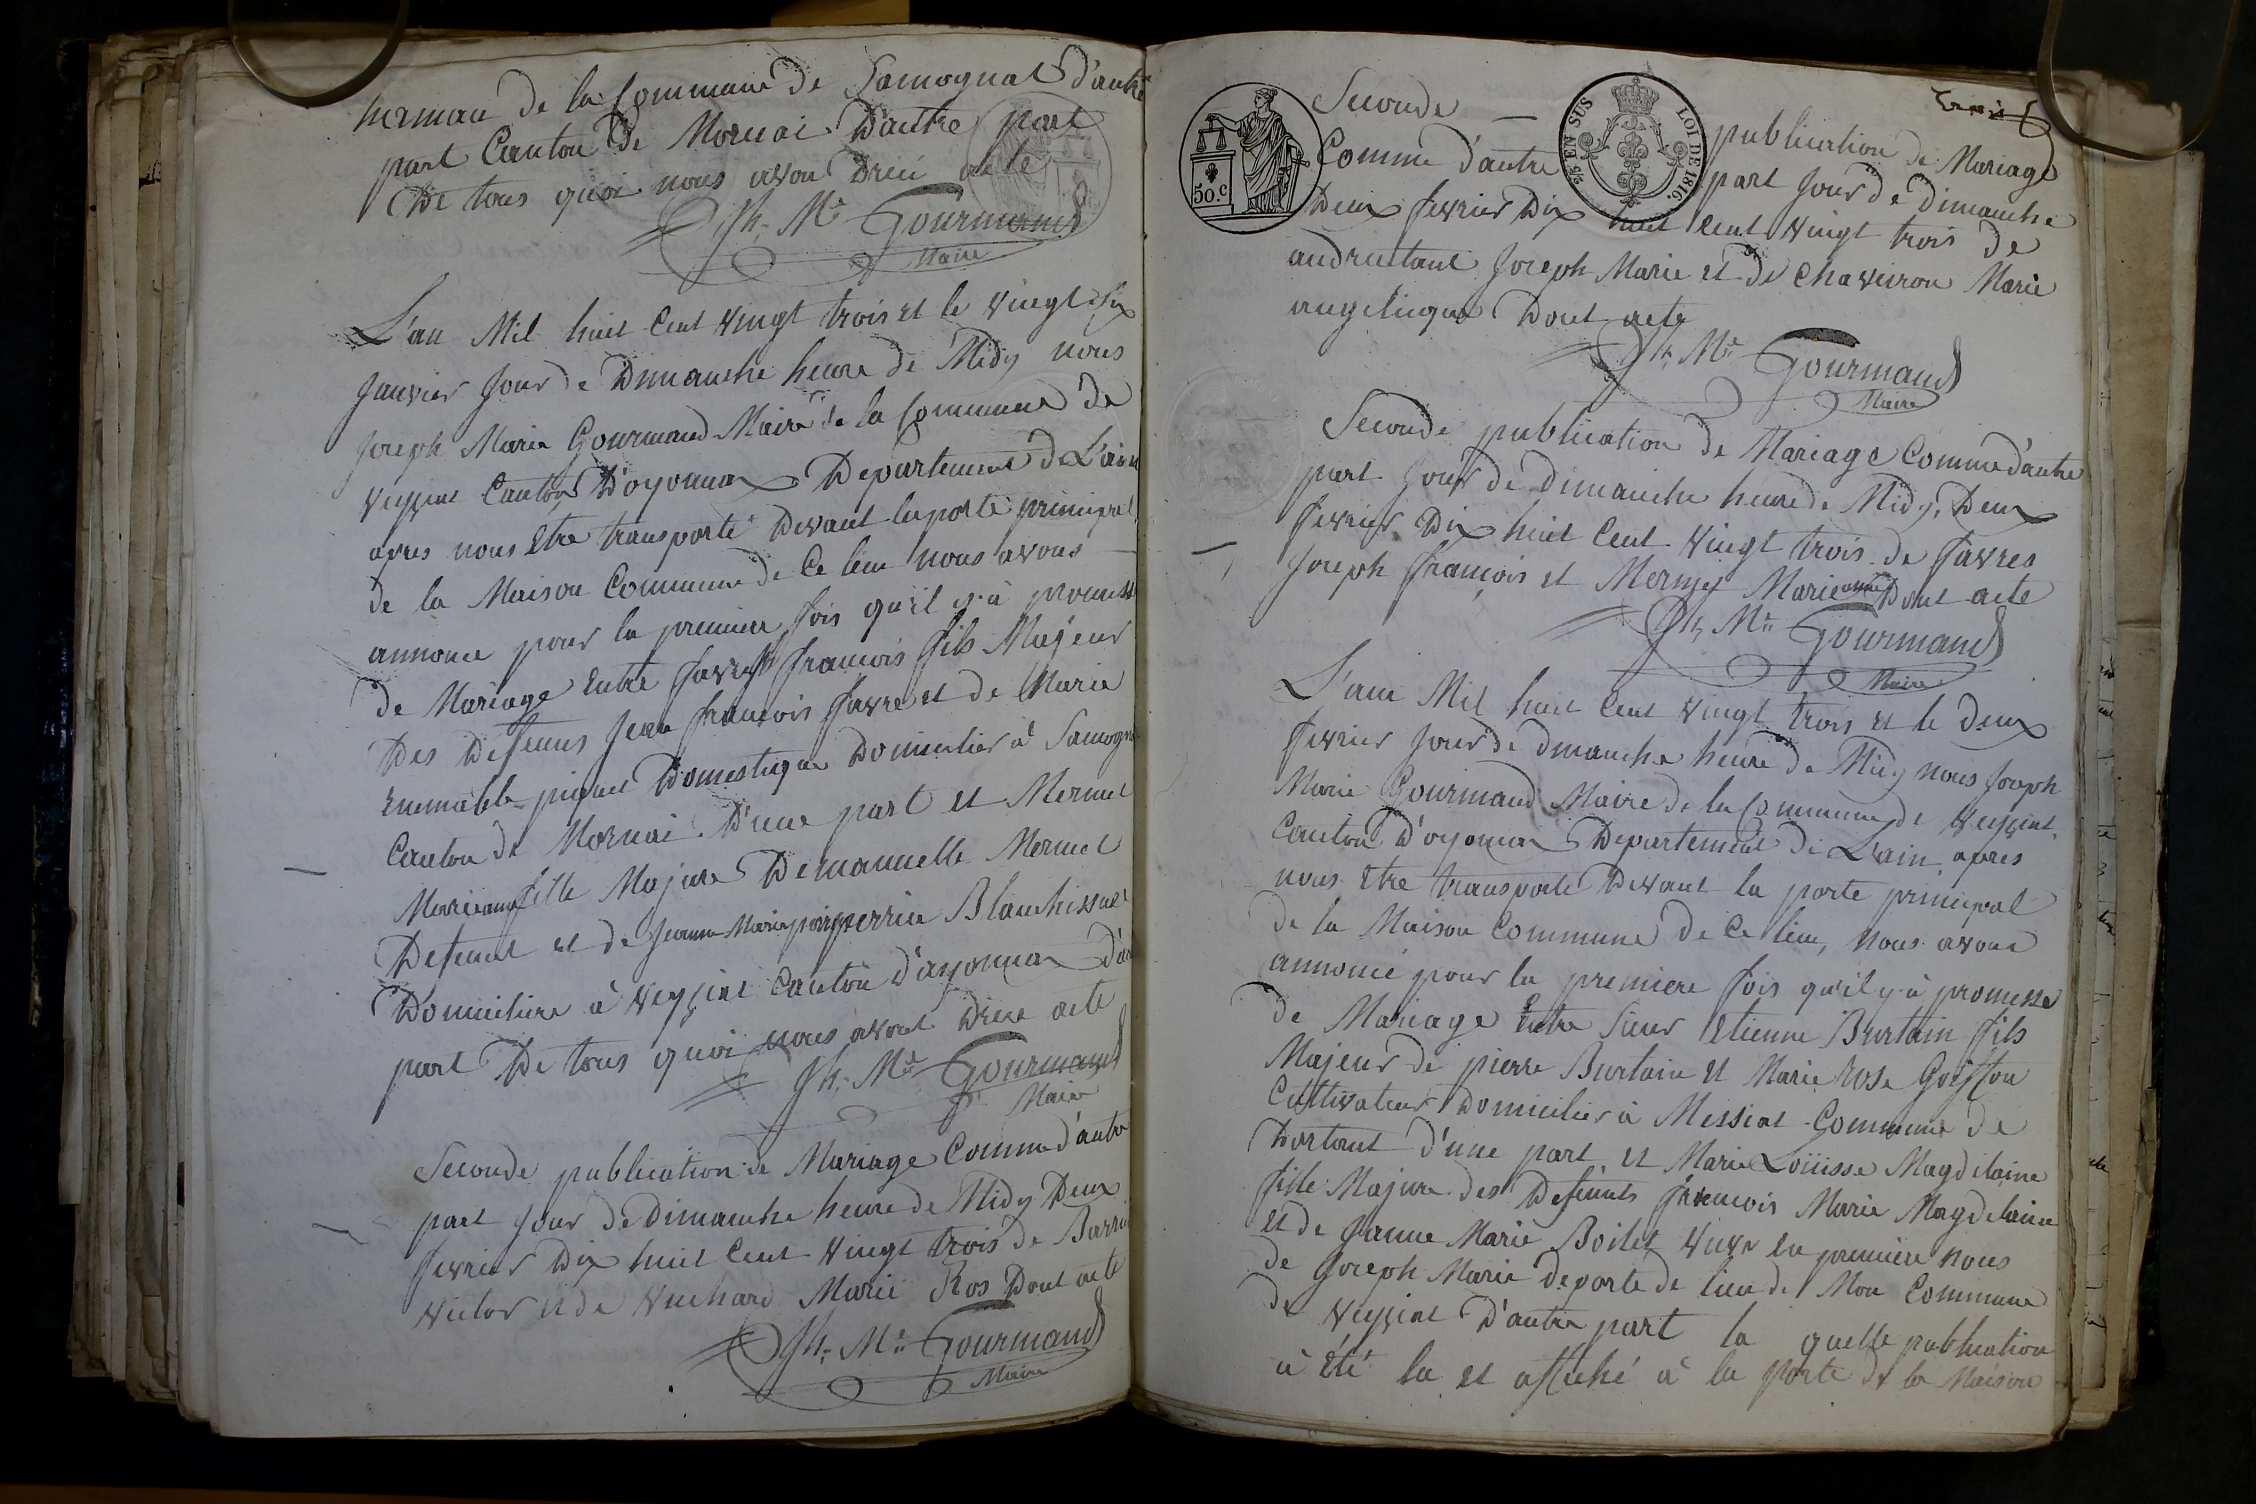 herman de la Commune de Samognat d'autre
part Canton de Mornai D'autre part
De tous quoi nous avon Dréii acte
Jh. Mie Gourmand
Maire
L'an Mil huit Cent vingt trois et le vingt six
Janvier Jour de Dimanche heure de Midy nous
Joseph Marie Gourmand Maire de la Commune de
Veyziat Canton D'oyonnax Departement de L'ain
apres nous Etre transporté Devant la porte principal
de la Maison Commune de Ce lieu nous avons
annonce pour la premiere fois qu'il y a promesse
de Mariage Entre favre Jh francois fils Majeur
Des Defunts Jean francois favre et de Marie
Domestique Domicilier à Samogna
Canton de Mornai D'une part et Mermet
Marieanne fille Majure Demanuelle Mermet
Defunt et de Jeanne Marie perrin Blanchisseuse
Domiciliere à Veyziat Canton D'oyonnax D'au
part De tous quoi nous avont Drese acte
Jh. Mie Gourmand
Maire
Seconde publication de Mariage Comme d'autre
part Jour de Dimanche heure de Midy Deux
fevrier Dix huit Cent vingt trois de
Victor et de Vuchard Marie Ros Dont acte
Jh. Mie Gourmand
Maire
50.c
5/5 EN SUS LOI DE 1816.
Seconde publication de Mariage
Comme d'autre part Jour de Dimanche
Deux fevrier Dix huit Cent vingt trois de
andruetant Joseph Marie et de Chaveiron Marie
angelique Dont acte
Jh. Mie Gourmand
Maire
Seconde publication de Mariage Comme d'autre
part Jour de Dimanche heure de Midy, Deux
fevrier Dix huit Cent Vingt trois de favres
Joseph françois et Mermet Marieanne Dont acte
Jh. Mie Gourmand
Maire
L'ann Mil huit Cent vingt trois et le Deux
fevrier Jour de Dmanche heure de Midy nous Joseph
Marie Gourmand Maire de la Commune de Veyziat
Canton D'oyonnax Departement de L'ain, apres
nous Etre transporte Devant la porte principal
de la Maison Commune de Ce lieu, nous avons
annoncé pour la premiere fois qu'il y à promesse
de Mariage Entre Sieur Etienne Burtain fils
Majeur de pierre Burtain et Marie Rose Goiffon
Cultivateur Domicilier à Messiat Commune de
Dortant d'une part et Marie Loüisse Magdelaine
fille Majure des Defünts francois Marie Magdelaine
et de Janne Marie Boilet veuve En premiere nous
de Joseph Marie deporte de lieu de Mon Commune
de Veyziat D'autre part la quelle publication
à Eté lu et affiché à la porte de la Maison